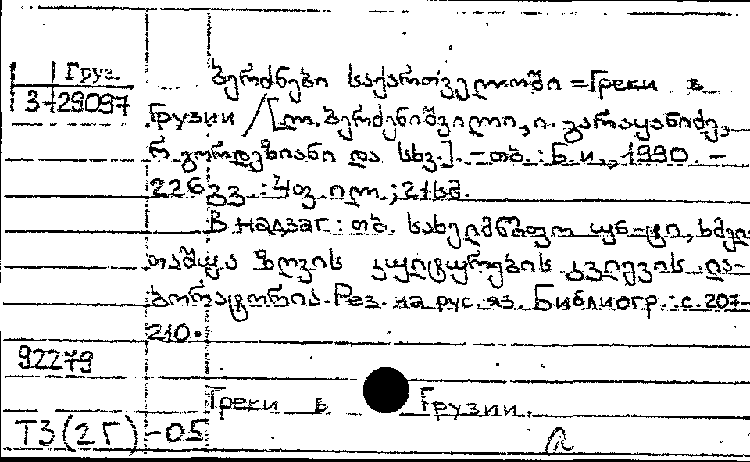 Груз.
3-29097
ბერძნები საქართველოში = Греки в
Грузии / [ლ. ბერძენიშვილი, ი. გარაყანიძე,
რ. გორდეზიანი და სხვ.]. - თბ. : Б. и., 1990. -
226 გვ. : 4 ილ. ; 21 სმ.
В надзаг : თბ. სახელმწიფო უნ-ტი, ხმელ-
თაშუა ზღვის კულტურების კვლევის ლა-
ბორატორია. Рез. на рус. яз. Библиогр.: с. 207-
210.
92279
Греки в Грузии.
Т3(2Г)-05